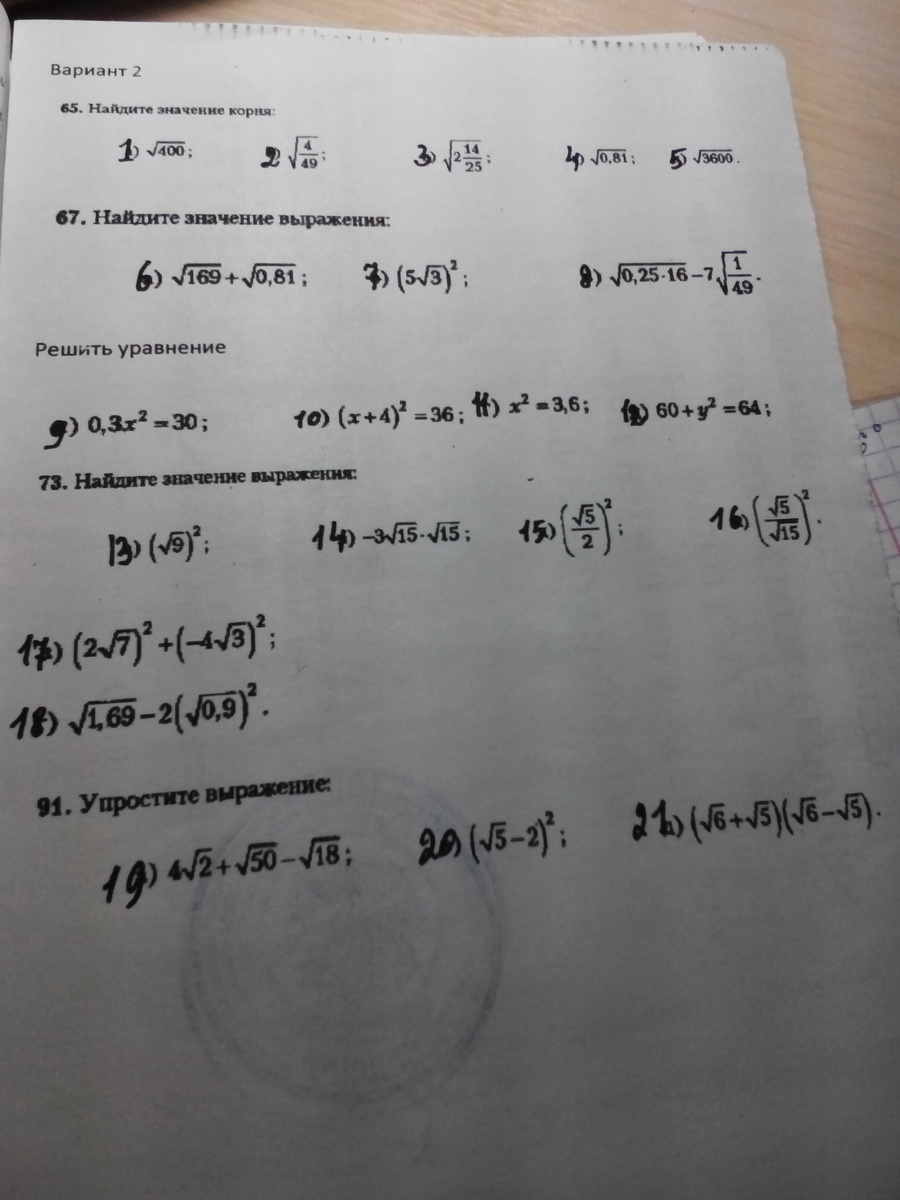 Вариант 2
65. Найдите значение корня:
1) √400; 2) √(4/49); 3) √(2 14/25); 4) √0,81; 5) √3600.
67. Найдите значение выражения:
6) √169 + √0,81; 7) (5√3)²; 8) √(0,25·16) − 7√(1/49).
Решить уравнение
9) 0,3x² = 30; 10) (x+4)² = 36; 11) x² = 3,6; 12) 60 + y² = 64;
73. Найдите значение выражения:
13) (√9)²; 14) −3√15·√15; 15) (√5/2)²; 16) (√5/√15)².
17) (2√7)² + (−4√3)²;
18) √1,69 − 2(√0,9)².
91. Упростите выражение:
19) 4√2 + √50 − √18; 20) (√5 − 2)²; 21) (√6 + √5)(√6 − √5).